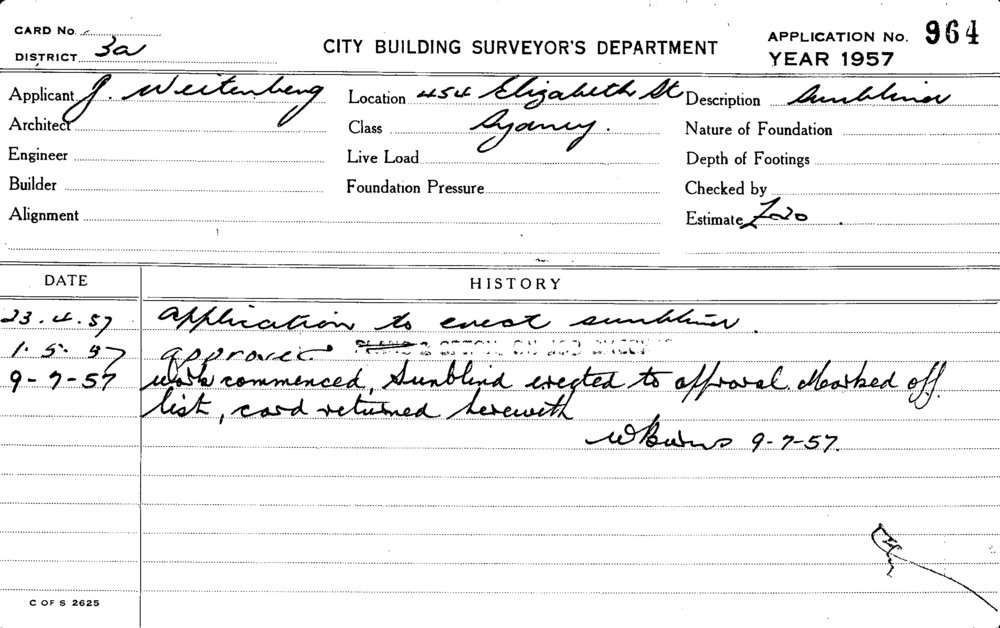 CARD No.
DISTRICT 3a
CITY BUILDING SURVEYOR'S DEPARTMENT
APPLICATION No. 964
YEAR 1957
Applicant J. Weitenberg Location 454 Elizabeth St Description Sunblind
Architect Class Sydney. Nature of Foundation
Engineer Live Load Depth of Footings
Builder Foundation Pressure Checked by
Alignment Estimate £20
DATE HISTORY
23.4.57 Application to erect sunblind.
1.5.57 approved
9-7-57 Work commenced, Sunblind erected to approval. Marked off
list, card returned herewith
W Burns 9-7-57.
C OF S 2625